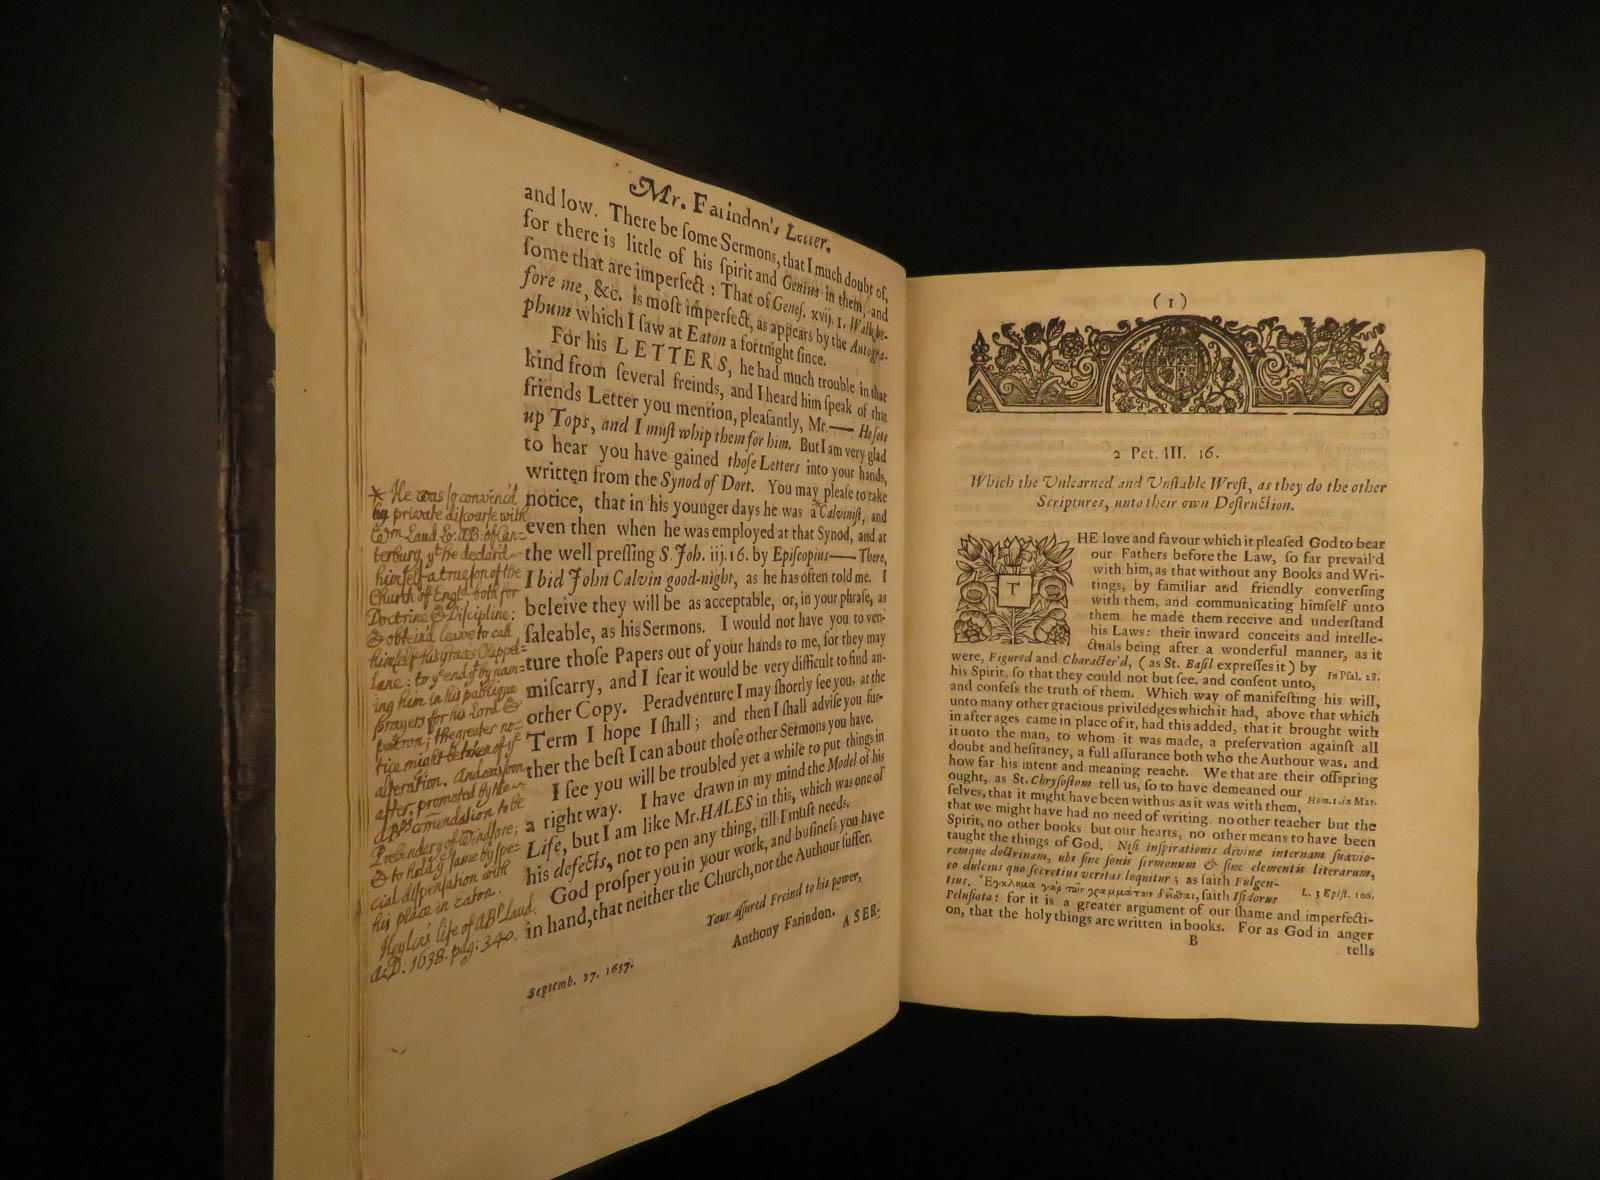 Mr. Farindon's Letter.
and low. There be ſome Sermons, that I much doubt of,
for there is little of his ſpirit and Genius in them, and
ſome that are imperfect : That of Geneſ. xvij. 1. Walk be-
fore me, &c. is moſt imperfect, as appears by the Autogra-
phum which I ſaw at Eaton a fortnight ſince.
For his LETTERS, he had much trouble in that
kind from ſeveral freinds, and I heard him ſpeak of that
friends Letter you mention, pleaſantly, Mr.—— He ſets
up Tops, and I muſt whip them for him. But I am very glad
to hear you have gained thoſe Letters into your hands,
written from the Synod of Dort. You may pleaſe to take
notice, that in his younger days he was a Calviniſt, and
even then when he was employed at that Synod, and at
the well preſſing S. Joh. iij. 16. by Epiſcopius—— There,
I bid John Calvin good-night, as he has often told me. I
beleive they will be as acceptable, or, in your phraſe, as
ſaleable, as his Sermons. I would not have you to ven-
ture thoſe Papers out of your hands to me, for they may
miſcarry, and I fear it would be very difficult to find an-
other Copy. Peradventure I may ſhortly ſee you, at the
Term I hope I ſhall ; and then I ſhall adviſe you fur-
ther the beſt I can about thoſe other Sermons you have.
I ſee you will be troubled yet a while to put things in
a right way. I have drawn in my mind the Model of his
Life, but I am like Mr. HALES in this, which was one of
his defects, not to pen any thing, till I muſt needs.
God proſper you in your work, and buſineſs you have
in hand, that neither the Church, nor the Authour ſuffer.
Your aſſured Freind to his power,
Anthony Farindon.
Septemb. 17. 1657.
A SER-
* He was ſo convinc'd
by private diſcourſe with
Laud Lo: AB: of Can-
terbury yt he declar'd
himſelf a true ſon of the
Church of Engld both for
Doctrine & Diſcipline:
& obteind leave to call
himſelf his Graces Chappel-
lane: to ye end yt by nam-
ing him in his publique
prayers for his Lord &
patron; the greater no-
tice might be taken of ye
alteration. And was ſoon
after, promoted by the
ABps comendation to be
Prebendary of Windſore;
& to hold ye ſame by ſpe-
cial diſpenſation with
his place in Eaton.
Heylin's life of ABp Laud.
A:D: 1638. pag: 340.
( 1 )
2 Pet. III. 16.
Which the Unlearned and Unſtable Wreſt, as they do the other
Scriptures, unto their own Deſtruction.
THE love and favour which it pleaſed God to bear
our Fathers before the Law, ſo far prevail'd
with him, as that without any Books and Wri-
tings, by familiar and friendly converſing
with them, and communicating himſelf unto
them, he made them receive and underſtand
his Laws: their inward conceits and intelle-
ctuals being after a wonderful manner, as it
were, Figured and Character'd, ( as St. Baſil expreſſes it ) by
his Spirit, ſo that they could not but ſee, and conſent unto,
In Pſal. 28.
and confeſs the truth of them. Which way of manifeſting his will,
unto many other gracious priviledges which it had, above that which
in after ages came in place of it, had this added, that it brought with
it unto the man, to whom it was made, a preſervation againſt all
doubt and heſitancy, a full aſſurance both who the Authour was, and
how far his intent and meaning reacht. We that are their offspring
ought, as St. Chryſoſtom tell us, ſo to have demeaned our
ſelves, that it might have been with us as it was with them,
Hom. 1. in Mat.
that we might have had no need of writing, no other teacher but the
Spirit, no other books but our hearts, no other means to have been
taught the things of God. Niſi inſpirationis divinæ internam ſuavio-
remque doctrinam, ubi ſine ſonis ſermonum & ſine elementis literarum,
eo dulcius quo ſecretius veritas loquitur ; as ſaith Fulgen-
tius. Ἔγκλημα γὰρ τῶν γραμμάτων δεῖσθαι, ſaith Iſidorus
L. 3 Epiſt. 106.
Peluſiota: for it is a greater argument of our ſhame and imperfecti-
on, that the holy things are written in books. For as God in anger
B
tells